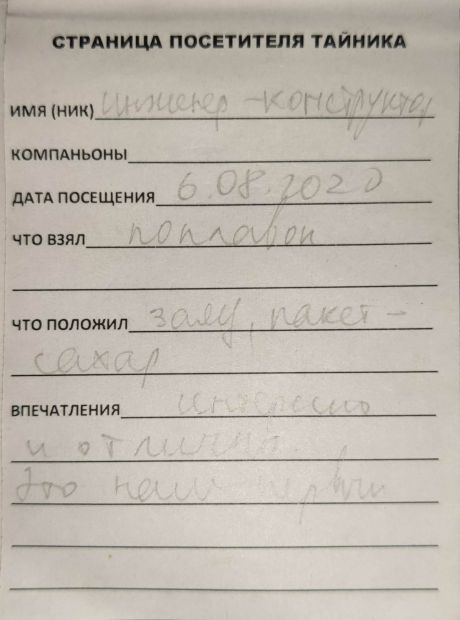 СТРАНИЦА ПОСЕТИТЕЛЯ ТАЙНИКА
ИМЯ (НИК) инженер-конструктор
КОМПАНЬОНЫ
ДАТА ПОСЕЩЕНИЯ 6.08.2020
ЧТО ВЗЯЛ поплавок
ЧТО ПОЛОЖИЛ пакет-
сахар
ВПЕЧАТЛЕНИЯ интересно
и отлично.
Это наш первый